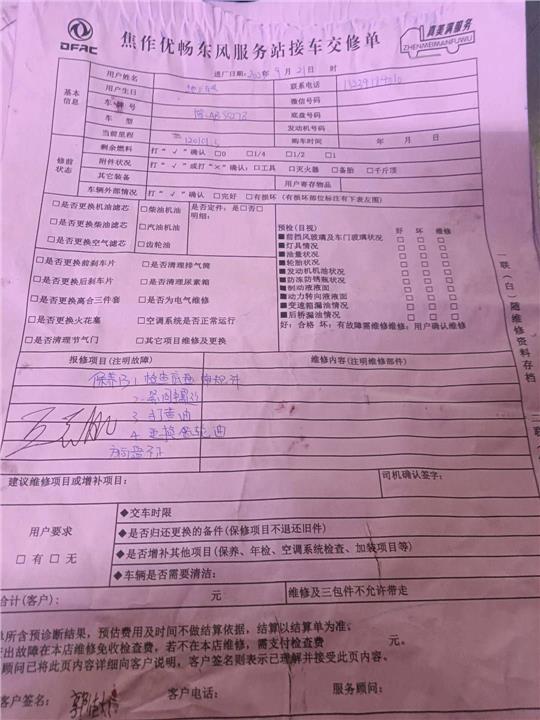 DFAC
焦作优畅东风服务站接车交修单
真美满服务
ZHENMEIMANFUWU
进厂日期:202 年9月21日 时
基本信息
用户姓名
联系电话
用户生日
微信号码
车牌号
底盘号码
车 型
发动机号码
当前里程
购车时间 年 月 日
修前状态
剩余燃料 打“√”确认 □0 □1/4 □1/2 □1
附件状况 打“√”或打“×”确认:□工具 □灭火器 □备胎 □千斤顶
其它装备 用户寄存物品
车辆外部情况 打“√”确认 □完好 □有损坏(有损坏部位标注有下表左图)
□是否更换机油滤芯 □柴油机油 是否定件,是□否□
□是否更换柴油滤芯 □汽油机油 明细:
□是否更换空气滤芯 □齿轮油
□是否更换前刹车片 □是否清理排气筒
□是否更换后刹车片 □是否清理尿素箱
□是否更换离合三件套 □是否为电气维修
□是否更换火花塞 □空调系统是否正常运行
□是否清理节气门 □其它项目维修及更换
预检(目视) 好 坏 维修
■前挡风玻璃及车门玻璃状况 □ □ □
■灯具情况 □ □ □
■油量状况 □ □ □
■轮胎状况 □ □ □
■发动机机油状况 □ □ □
■防冻防锈瓶状况 □ □ □
■制动液液面 □ □ □
■动力转向液液面 □ □ □
■变速箱漏油情况 □ □ □
■后桥漏油情况 □ □ □
好:合格 坏:有故障需维修维修:用户确认维修
一联(白)随维修资料存档
报修项目(注明故障) 维修内容(注明维修部件)
保养
3 打黄油
建议维修项目或增补项目: 司机确认签字:
用户要求
□有 □无
◆交车时限
◆是否归还更换的备件(保修项目不退还旧件)
◆是否增补其他项目(保养、年检、空调系统检查、加装项目等)
◆车辆是否需要清洁:
合计(客户): 元 维修及三包件不允许带走
单所含预诊断结果,预估费用及时间不做结算依据,结算以结算单为准。
出故障在本店维修免收检查费,若不在本店维修,需支付检查费 元。
顾问已将此页内容详细向客户说明,客户签名则表示已理解并接受此页内容。
客户签名: 客户电话: 服务顾问: